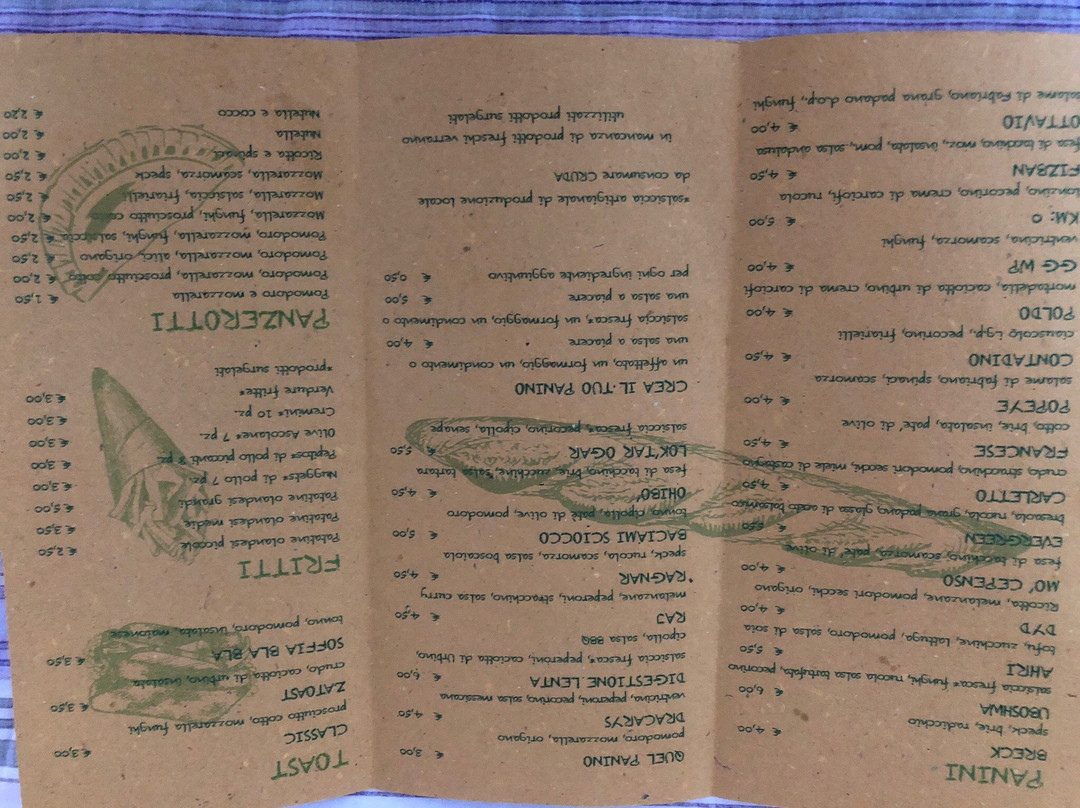 PANINI
BRECK € 4,00
speck, brie, radicchio
UBOSHWA € 6,00
salsiccia fresca* funghi, rucola salsa tartufata, pecorino
AHRI € 5,50
tofu, zucchine, lattuga, pomodoro, salsa di soia
DYD € 4,00
Ricotta, melanzane, pomodori secchi, origano
MO' CE PENSO € 4,00
fesa di tacchino, scamorza, patè di olive
EVERGREEN
bresaola, rucola, grana padano, glassa di aceto balsamico
CARLETTO € 4,50
crudo, stracchino, pomodori secchi, miele di castagno
FRANCESE € 4,50
cotto, brie, insalata, patè di olive
POPEYE € 4,00
salame di fabriano, spinaci, scamorza
CONTADINO € 4,50
ciauscolo i.g.p., pecorino, friarielli
POLDO € 4,00
mortadella, caciotta, urbino, crema di carciofi
GG WP € 4,00
ventricina, scamorza, funghi
KM: 0 € 5,00
lonzino, pecorino, crema di carciofi, rucola
FIZBAN € 4,50
fesa di tacchino, moz., insalata, pom., salsa andalusa
OTTAVIO € 4,00
salame di Fabriano, grana padano d.o.p., funghi
QUEL PANINO € 3,00
pomodoro, mozzarella, origano
DRACARYS € 4,50
ventricina, peperoni, pecorino, salsa messicana
DIGESTIONE LENTA € 6,00
salsiccia fresca* peperoni, caciotta di Urbino,
cipolla, salsa BBQ
RAJ € 4,50
melanzane, peperoni, stracchino, salsa curry
RAGNAR € 4,50
speck, rucola, scamorza, salsa boscaiola
BACIAMI SCIOCCO € 5,00
tonno, cipolla, patè di olive, pomodoro
OHIBO' € 4,50
fesa di tacchino, brie, zucchine, salsa tartara
LOK'TAR OGAR € 5,50
salsiccia fresca* pecorino, cipolla, senape
CREA IL TUO PANINO
un affettato, un formaggio, un condimento o
una salsa a piacere € 4,00
salsiccia fresca*, un formaggio, un condimento o
una salsa a piacere € 5,00
per ogni ingrediente aggiuntivo € 0,50
*salsiccia artigianale di produzione locale
da consumare CRUDA
in mancanza di prodotti freschi verranno
utilizzati prodotti surgelati
TOAST
CLASSIC € 3,00
prosciutto cotto, mozzarella funghi
ZATOAST € 3,50
crudo, caciotta di urbino, insalata
SOFFIA BLA BLA € 3,50
tonno, pomodoro, insalata, maionese
FRITTI
Patatine olandesi piccole € 2,50
Patatine olandesi medie € 3,50
Patatine olandesi grandi € 5,00
Nuggets* di pollo 7 pz. € 3,00
Peplos* di pollo piccanti 7 pz. € 3,00
Olive Ascolane* 7 pz. € 3,00
Cremini* 10 pz. € 3,00
Verdure fritte* € 3,00
*prodotti surgelati
PANZEROTTI
Pomodoro e mozzarella € 1,50
Pomodoro, mozzarella, prosciutto cotto € 2,00
Pomodoro, mozzarella, alici, origano € 2,50
Pomodoro, mozzarella, funghi, salsiccia € 2,50
Mozzarella, funghi, prosciutto cotto € 2,00
Mozzarella, salsiccia, friarielli € 2,50
Mozzarella, scamorza, speck € 2,50
Ricotta e spinaci € 2,00
Nutella € 2,00
Nutella e cocco € 2,20